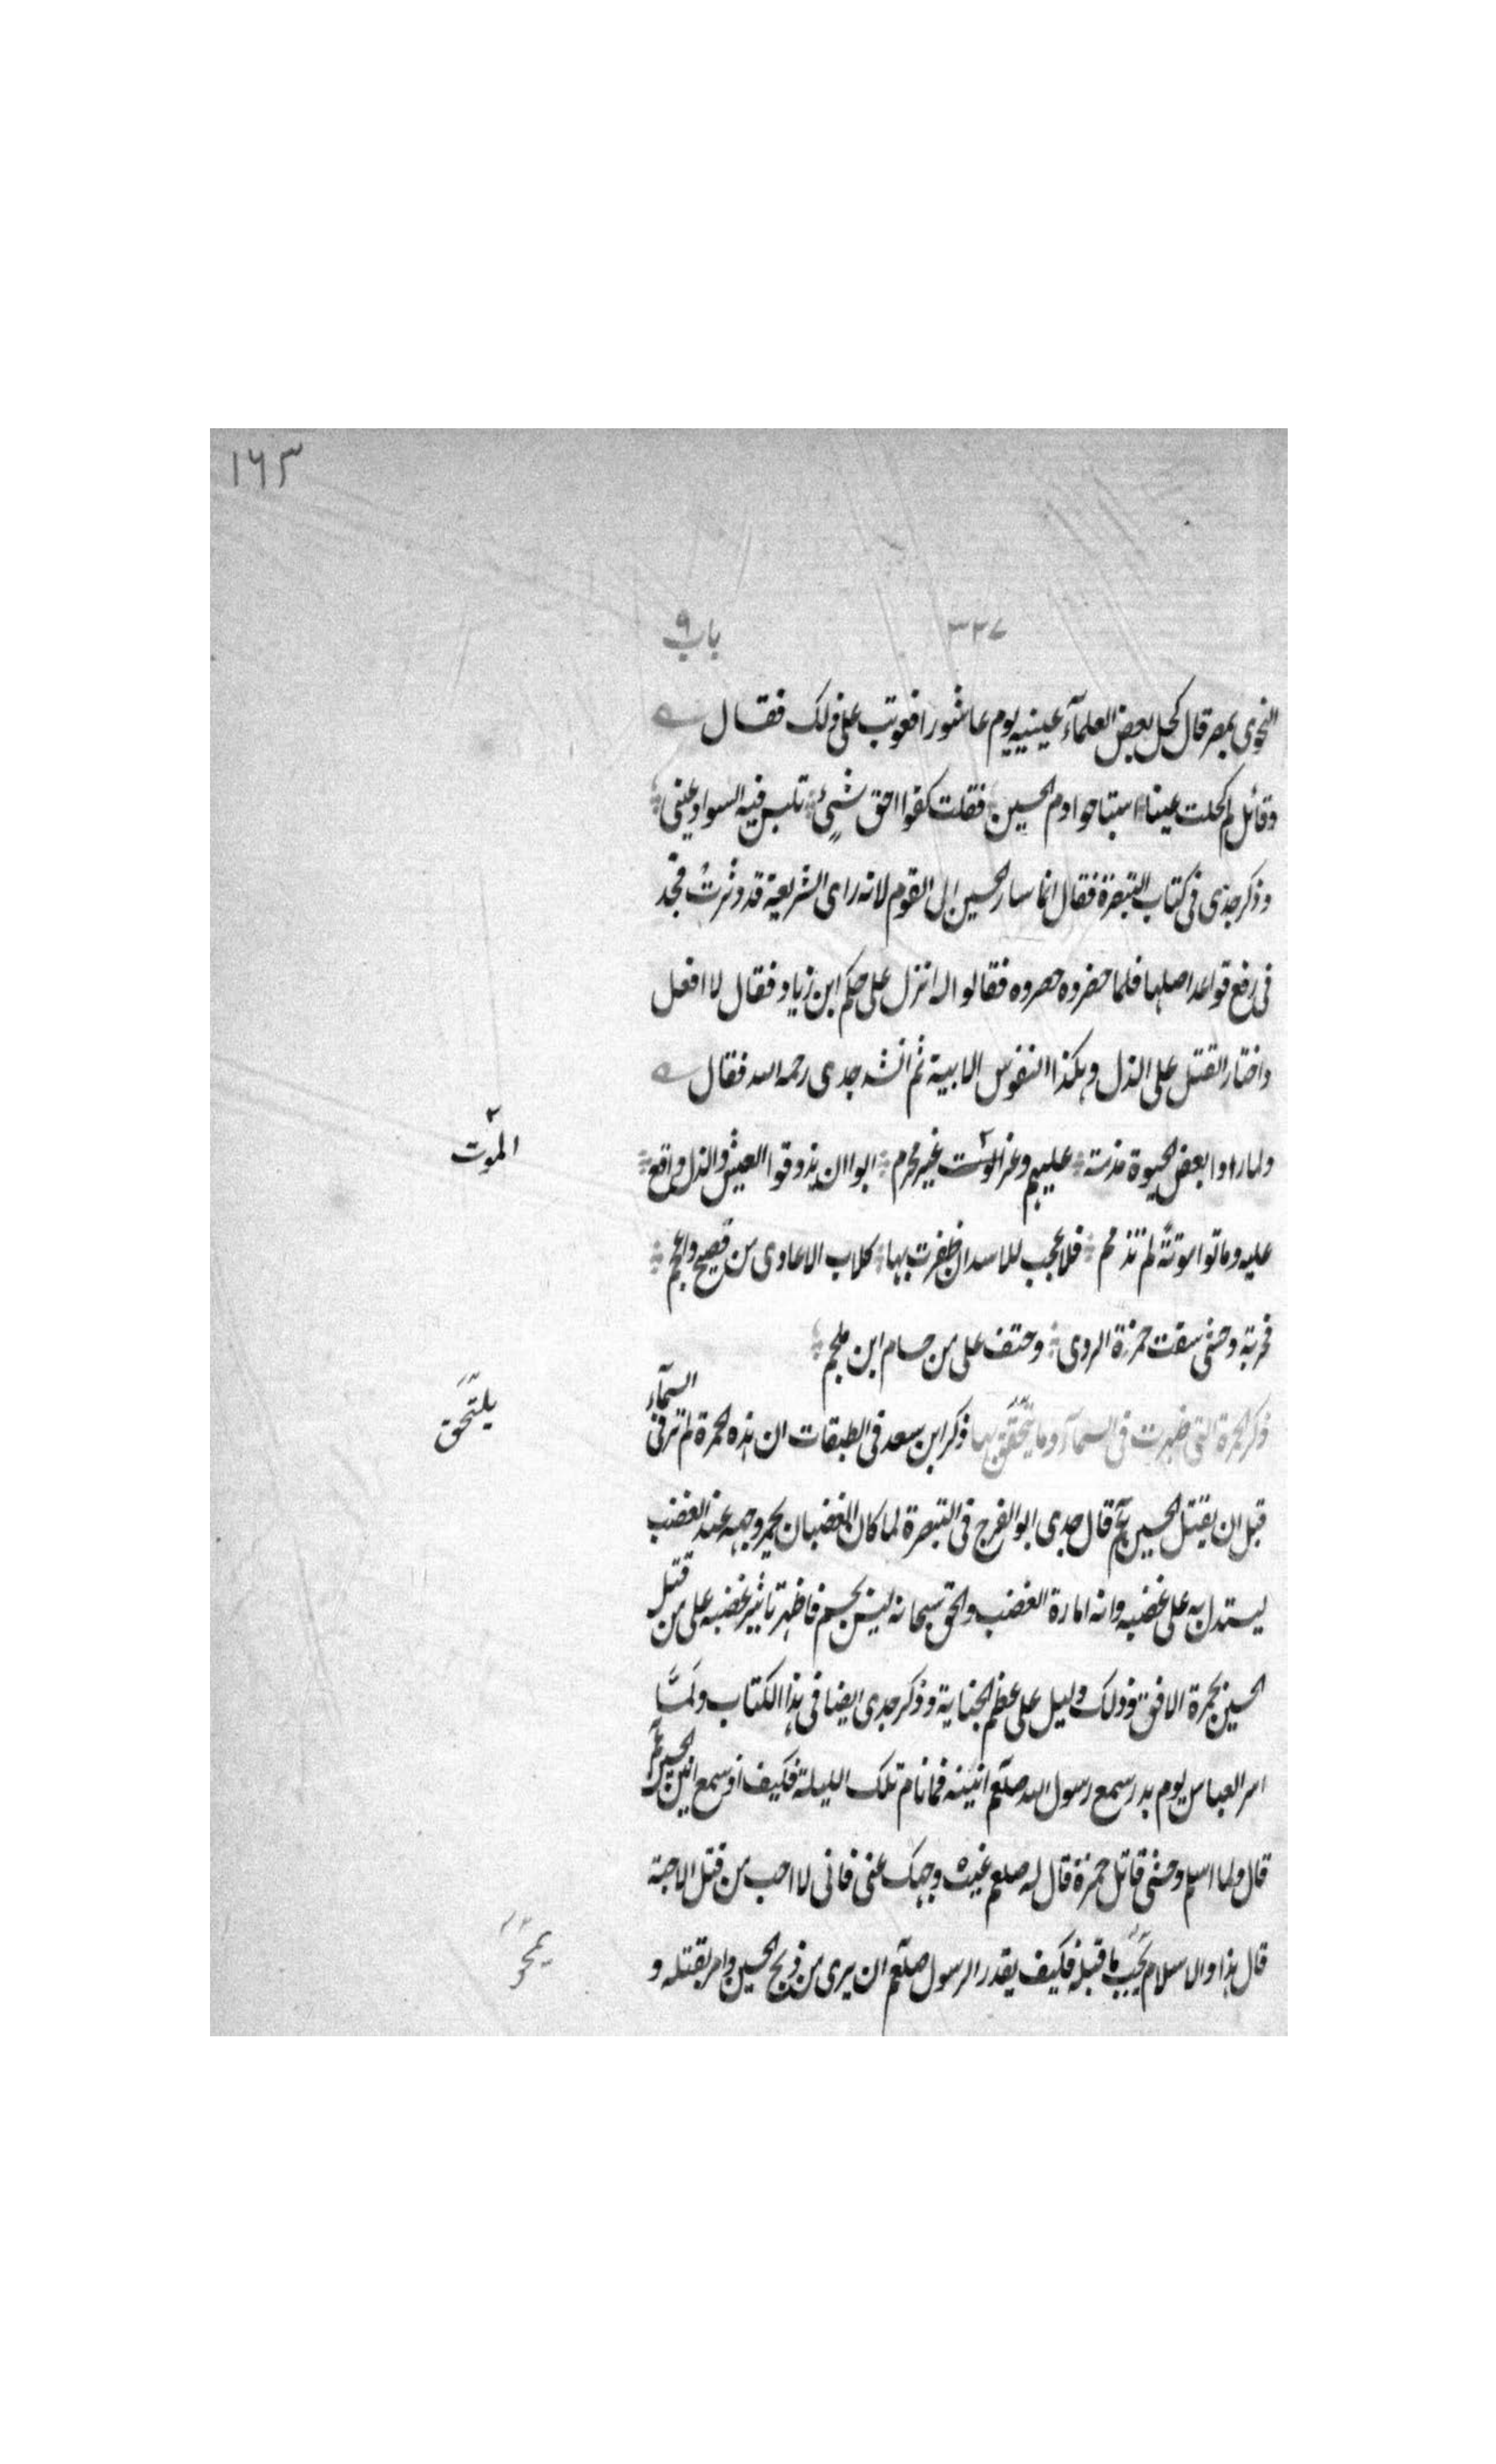 ١٦٣
٣٣٧ باب ٩
النحوى بمصر قال كحل بعض العلمآء عينيه يوم عاشورا فعوتب على ذلك فقال
وقائل لم كحلت عينا استباحوا دم الحسين فقلت كفوا احق شىء تلبس فيه السواد عينى
وذكر جدى فى كتاب التبصرة فقال انما سار الحسين الى القوم لانه راى الشريعة قد دثرت فجد
فى رفع قواعد اصلها فلما حضروه حصروه فقالوا له انزل على حكم ابن زياد فقال لا افعل
واختار القتل على الذل وهكذا النفوس الابية ثم انشد جدى رحمه الله فقال
ولما راوا بعض الحيوة مذمة عليهم وعز الموت غير محرم ابوا ان يذوقوا العيش والذل واقع
عليه وماتوا موتة لم تذمم فلا عجب للاسد ان ظفرت بها كلاب الاعادى من فصيح واعجم
فحربة وحشى سقت حمزة الردى وحتف على من حسام ابن ملجم
ذكر الحمرة التى ظهرت فى السمآء وما يتحقق بها ذكر ابن سعد فى الطبقات ان هذه الحمرة لم تر فى السمآء
قبل ان يقتل الحسين ع قال جدى ابو الفرج فى التبصرة لما كان الغضبان يحمر وجهه عند الغضب
ليستدل به على غضبه وانه امارة الغضب والحق سبحانه ليس بجسم فاظهر تاثير غضبه على من قتل
الحسين بحمرة الافق وذلك دليل على عظم الجناية وذكر جدى ايضا فى هذا الكتاب ولمّا
اسر العباس يوم بدر سمع رسول الله صلعم انينه فما نام تلك الليلة فكيف لو سمع انين الحسين ع
قال ولما اسلم وحشى قاتل حمزة قال له صلعم غيب وجهك عنى فانى لا احب من قتل الاحبة
قال هذا والاسلام يجب ما قبله فكيف يقدر الرسول صلعم ان يرى من ذبح الحسين وامر بقتله و
الموت
يلتحق
يمحو